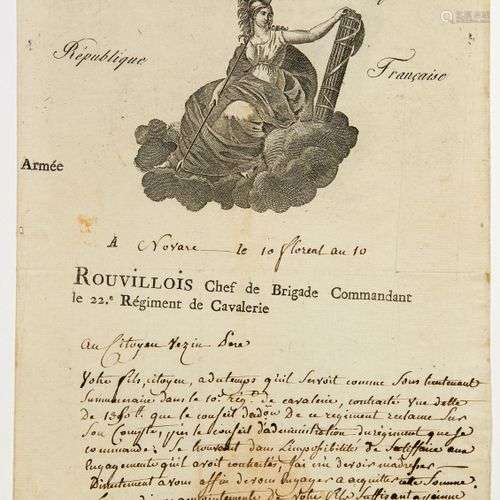 République
Française
Armée
A Novare le 10 floreal au 10
ROUVILLOIS Chef de Brigade Commandant
le 22.e Régiment de Cavalerie
Au Citoyen Vezin Pere
Votre fils, citoyen, a du temps qu'il servoit comme Sous lieutenant
Surnumeraire dans le 10e Régt. de cavalerie, contracté une dette
de que le conseil d'adon de ce regiment reclame sur
Son Compte, le conseil d'administration du regiment que je
commande, Se trouvant dans l'impossibilité de Satisfaire aux
Engagements qu'il avoit contractés, j'ai cru devoir m'adresser
Directement a vous affin de vous engager a acquiter cette Somme
de votre fils